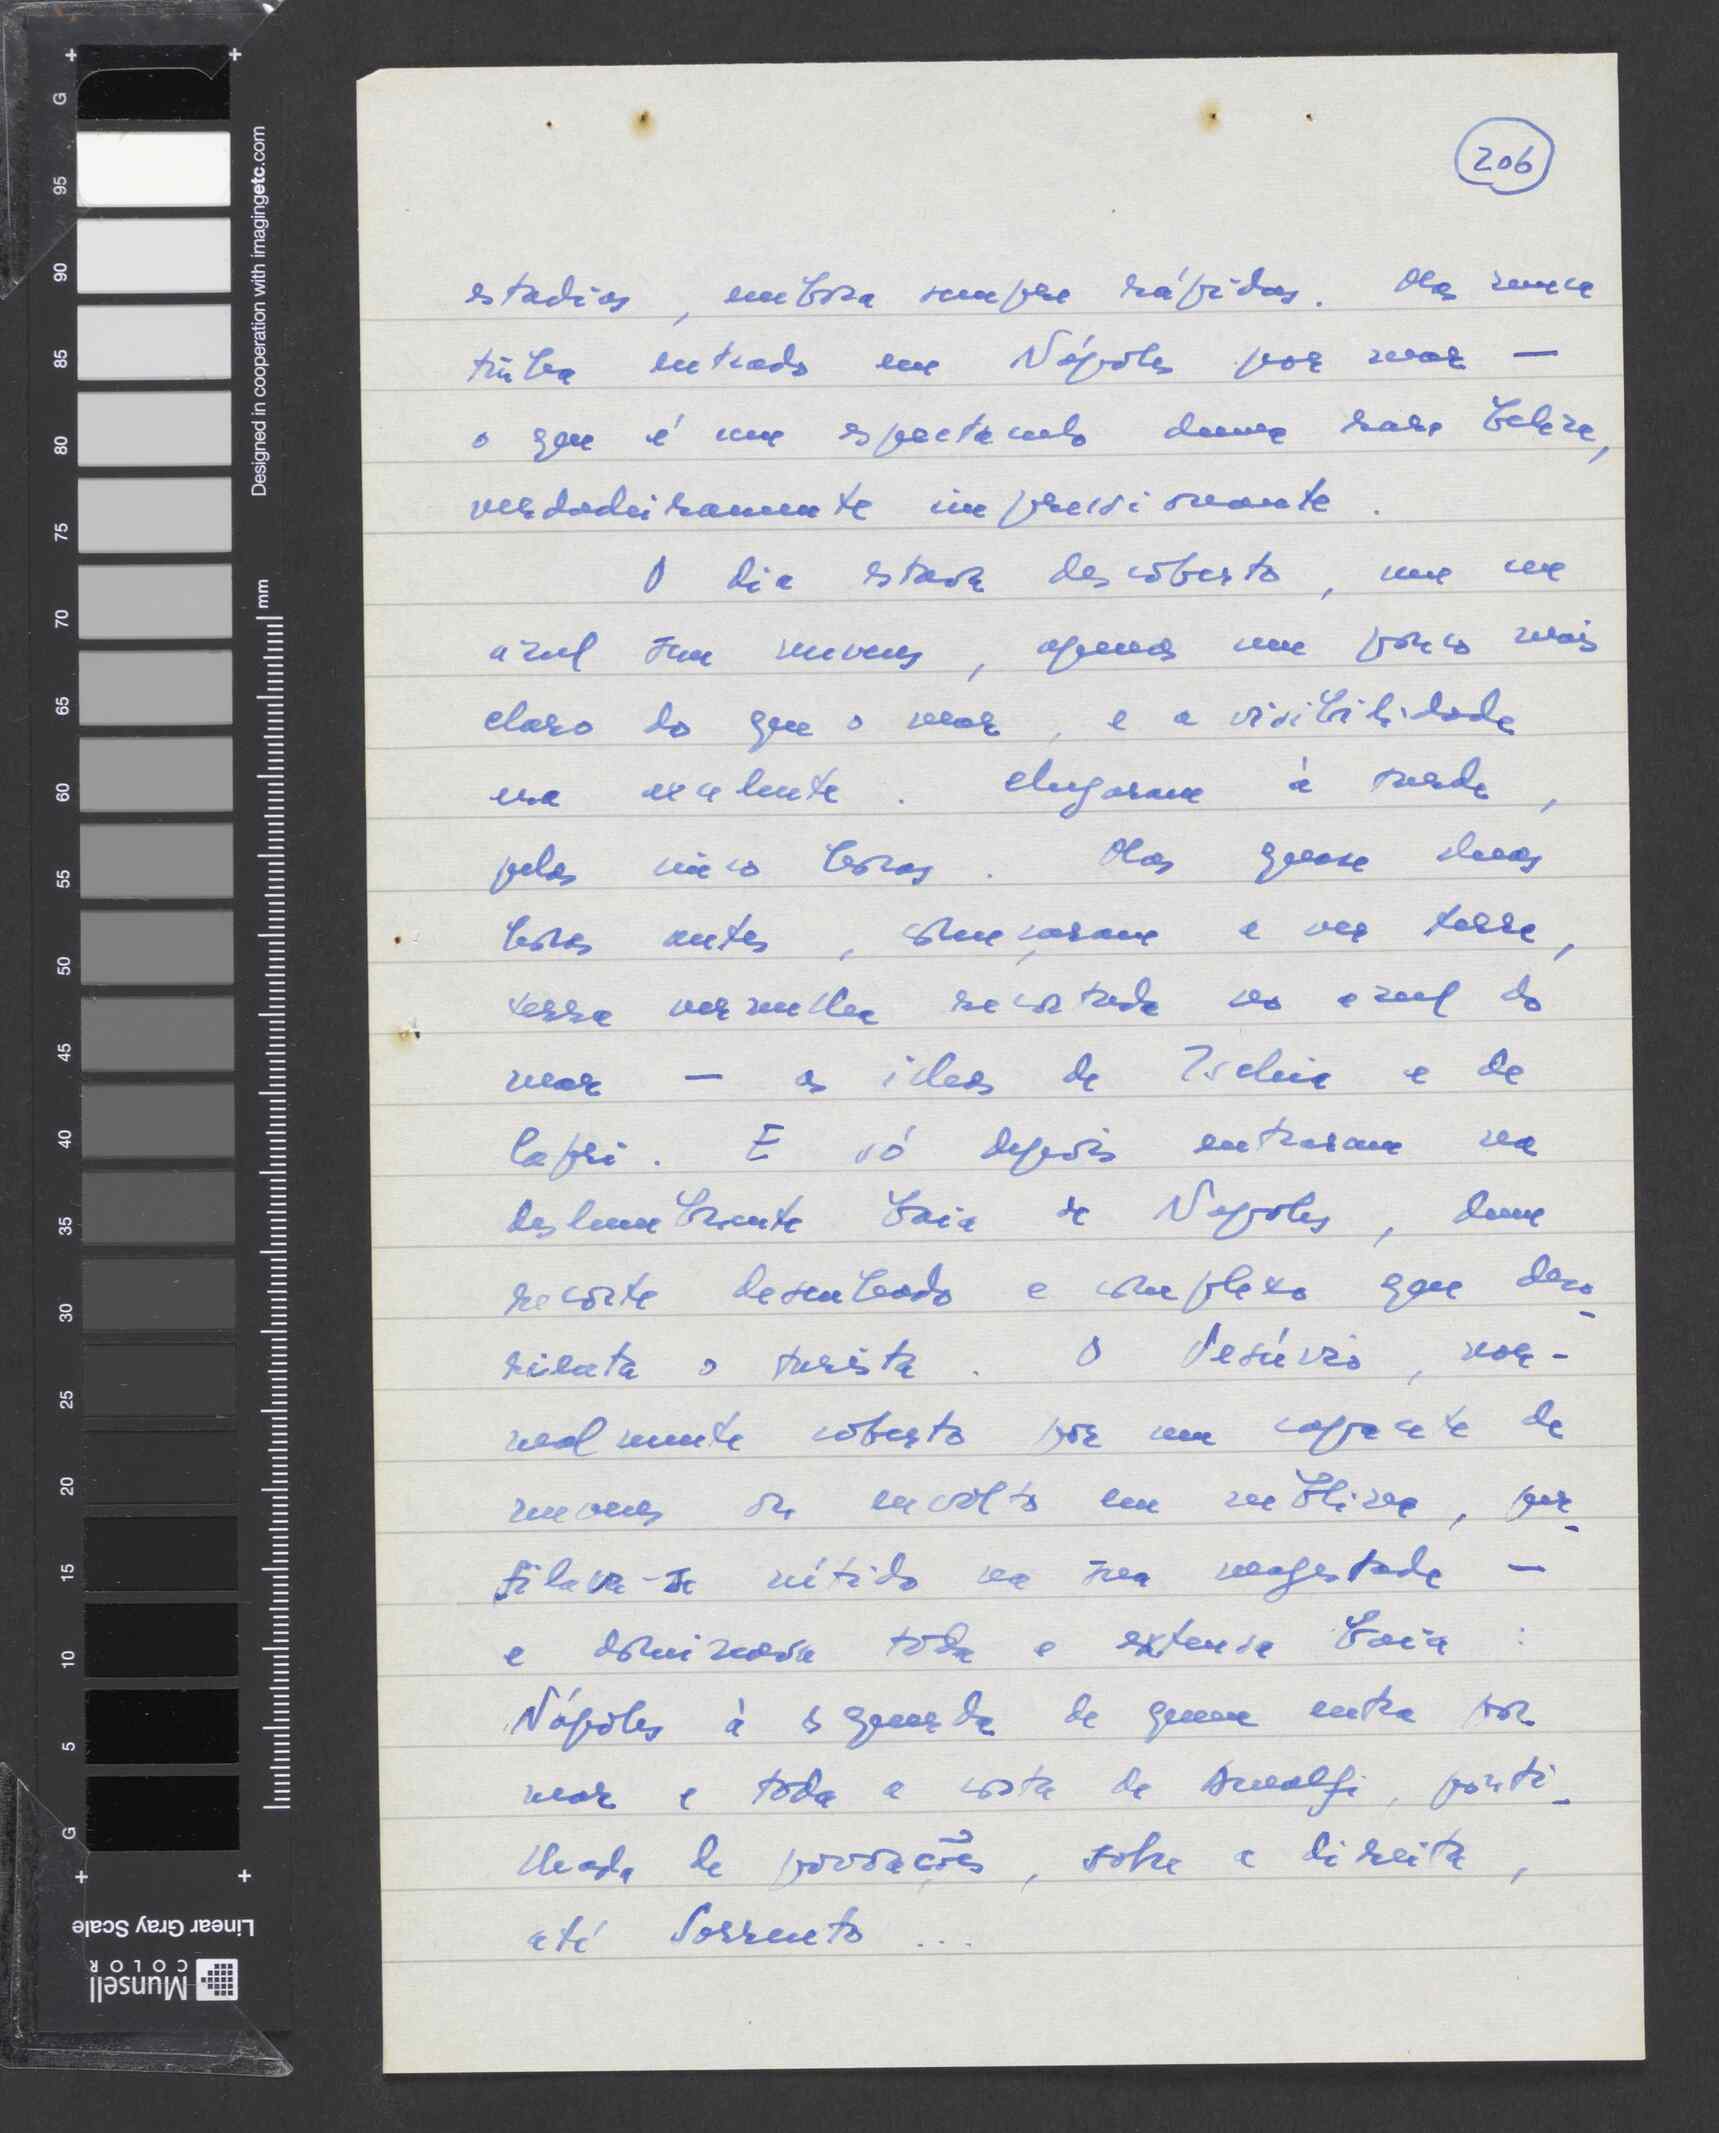 206
estadias, embora sempre rápidas. Mas nunca
tinha entrado em Nápoles por mar —
o que é um espectaculo duma rara beleza,
verdadeiramente impressionante.
O dia estava descoberto, num ceu
azul sem nuvens, apenas um pouco mais
claro do que o mar, e a visibilidade
era excelente. Chegaram à tarde,
pelas cinco horas. Mas quase duas
horas antes, começaram a ver terra,
terra vermelha recortada no azul do
mar — as ilhas de Ischia e de
Capri. E só depois entraram na
deslumbrante baia de Napoles, dum
recorte desenhado e complexo que deso-
rienta o turista. O Vesúvio, nor-
malmente coberto por um capacete de
nuvens ou envolto em neblina, per-
filava-se nítido na sua magestade —
e dominava toda a extensa baia:
Nápoles à esquerda de quem entra por
mar e toda a costa de Amalfi, ponti-
lhada de povoações, sobre a direita,
até Sorrento ...
Designed in cooperation with imagingetc.com
mm
G 95 90 85 80 75 70 65 60 55 50 45 40 35 30 25 20 15 10 5 G
Linear Gray Scale
Munsell
COLOR